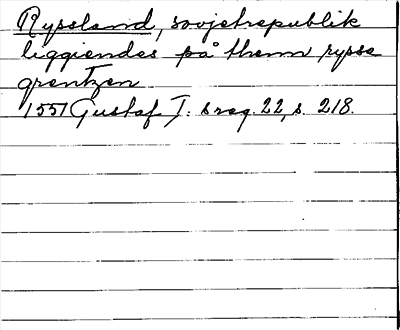 Ryssland, sovjetrepublik
liggiendes på thenn rysse
grentzen
1557 Gustaf I: s reg. 22, s. 218.